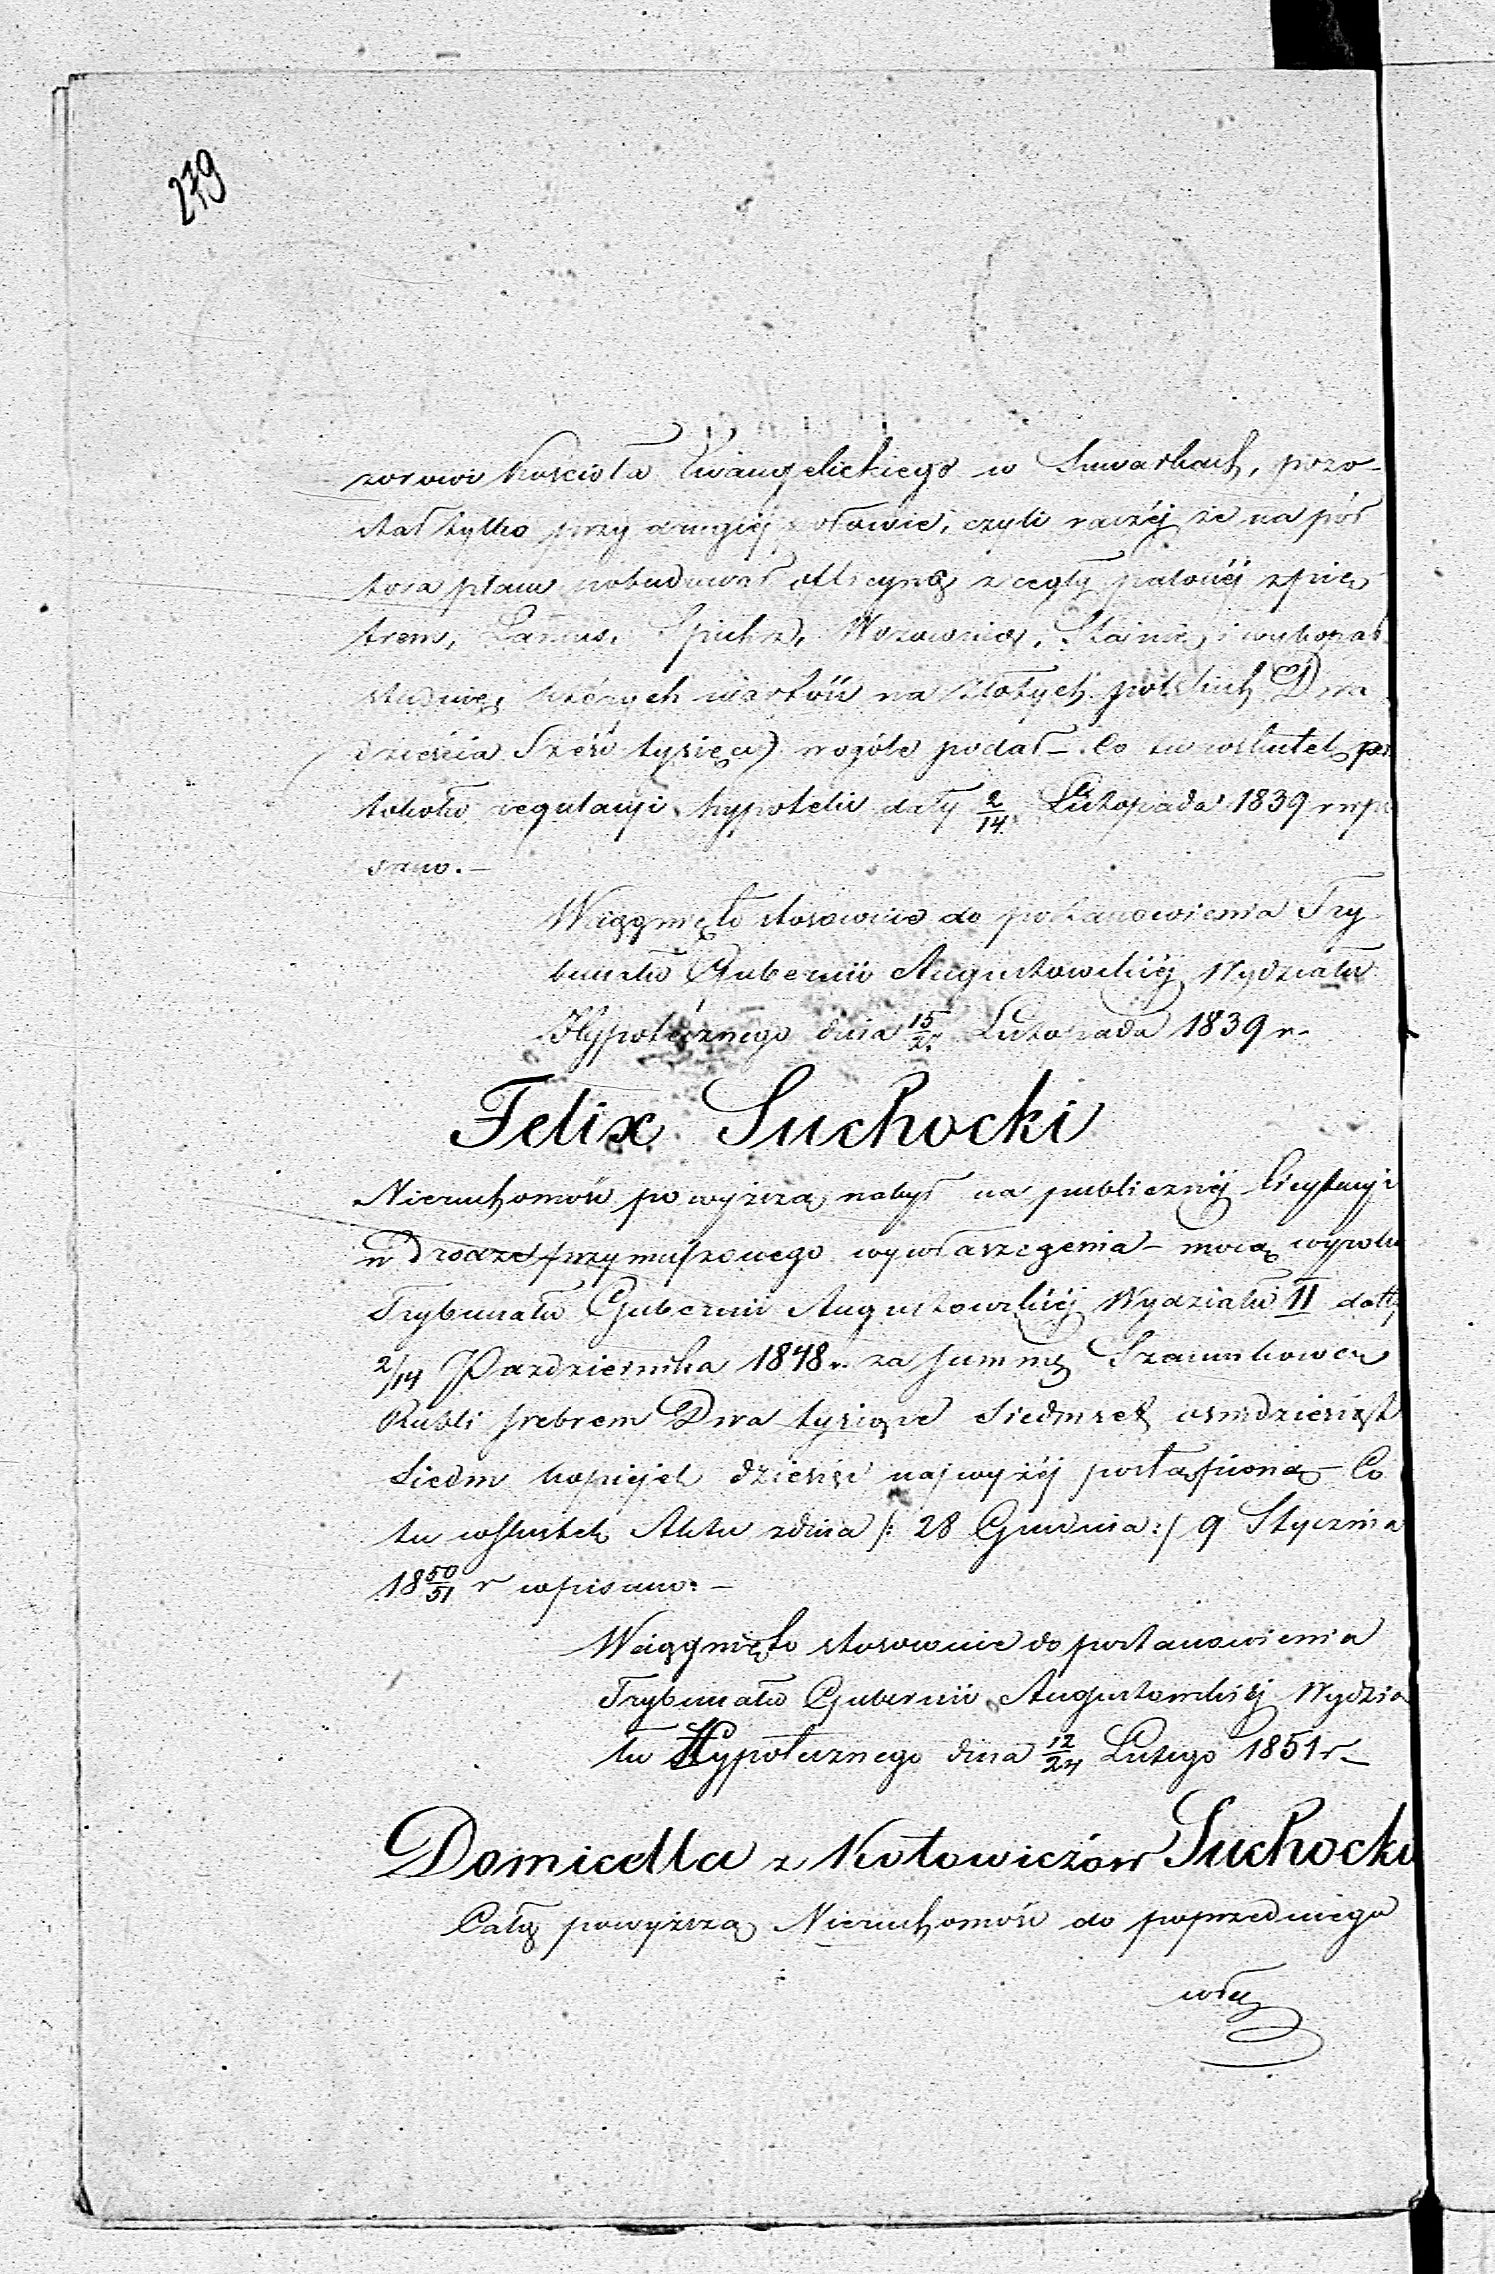 279
zorowi Kościoła Ewangelickiego w Suwałkach, pozo-
stał tylko przy drugiéj połowie, czyli raczéj że na pół
tora placu pobudował officynę z cegły palonéj z pię
trem, Lamus, Spichrz, Wozownią, Stajnię i wykopał
studnię, których wartość na Złotych polskich Dwa
dzieścia Sześć tysięcy wogóle podał – Co tu wskutek pro
tokołu regulacyi hypoteki daty 2/14 Listopada 1839 r wpi
sano. –
Wciągnięto stosownie do postanowienia Try
bunału Gubernii Augustowskiéj Wydziału
Hypotecznego dnia 15/27 Listopada 1839 r.
Felix Suchocki
Nieruchomość powyższą nabył na publicznéj licytacyi
w Drodze przymuszonego wywłaszczenia – mocą wyroku
Trybunału Gubernii Augustowskiéj Wydziału II daty
2/14 Pazdziernika 1848 r. za summę Szacunkową
Rubli srebrem Dwa tysiące siedmset osmdziesiąt
siedm kopiejek dziesięć najwyżéj postąpioną – Co
tu wskutek Aktu zdnia /: 28 Grudnia :/ 9 Stycznia
18 50/51 r wpisano. –
Wciągnięto stosownie do postanowienia
Trybunału Gubernii Augustowskiéj Wydzia
łu Hypotecznego dnia 12/24 Lutego 1851 r –
Domicella z Kotowiczów Suchocka
Całą powyższą Nieruchomość do poprzedniego